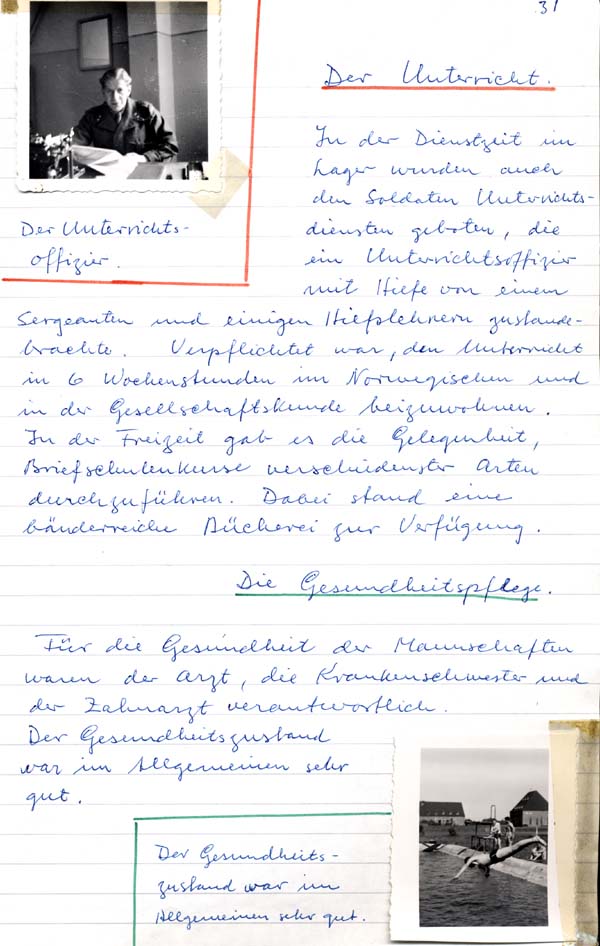 31
Der Unterricht.
In der Dienstzeit im
Lager wurden auch
den Soldaten Unterrichts-
diensten geboten, die
ein Unterrichtsoffizier
mit Hiefe von einem
Sergeanten und einigen Hiefslehrern zustande-
brachte. Verpflichtet war, den Unterricht
in 6 Wochenstunden im Norwegischen und
in der Gesellschaftskunde beizuwohnen.
In der Freizeit gab es die Gelegenheit,
Briefschulenkurse verschiedenster Arten
durchzuführen. Dabei stand eine
bänderreiche Bücherei zur Verfügung.
Der Unterrichts-
offizier.
Die Gesundheitspflege.
Für die Gesundheit der Mannschaften
waren der Arzt, die Krankenschwester und
der Zahnarzt verantwortlich.
Der Gesundheitszustand
war im Allgemeinen sehr
gut.
Der Gesundheits-
zustand war im
Allgemeinen sehr gut.